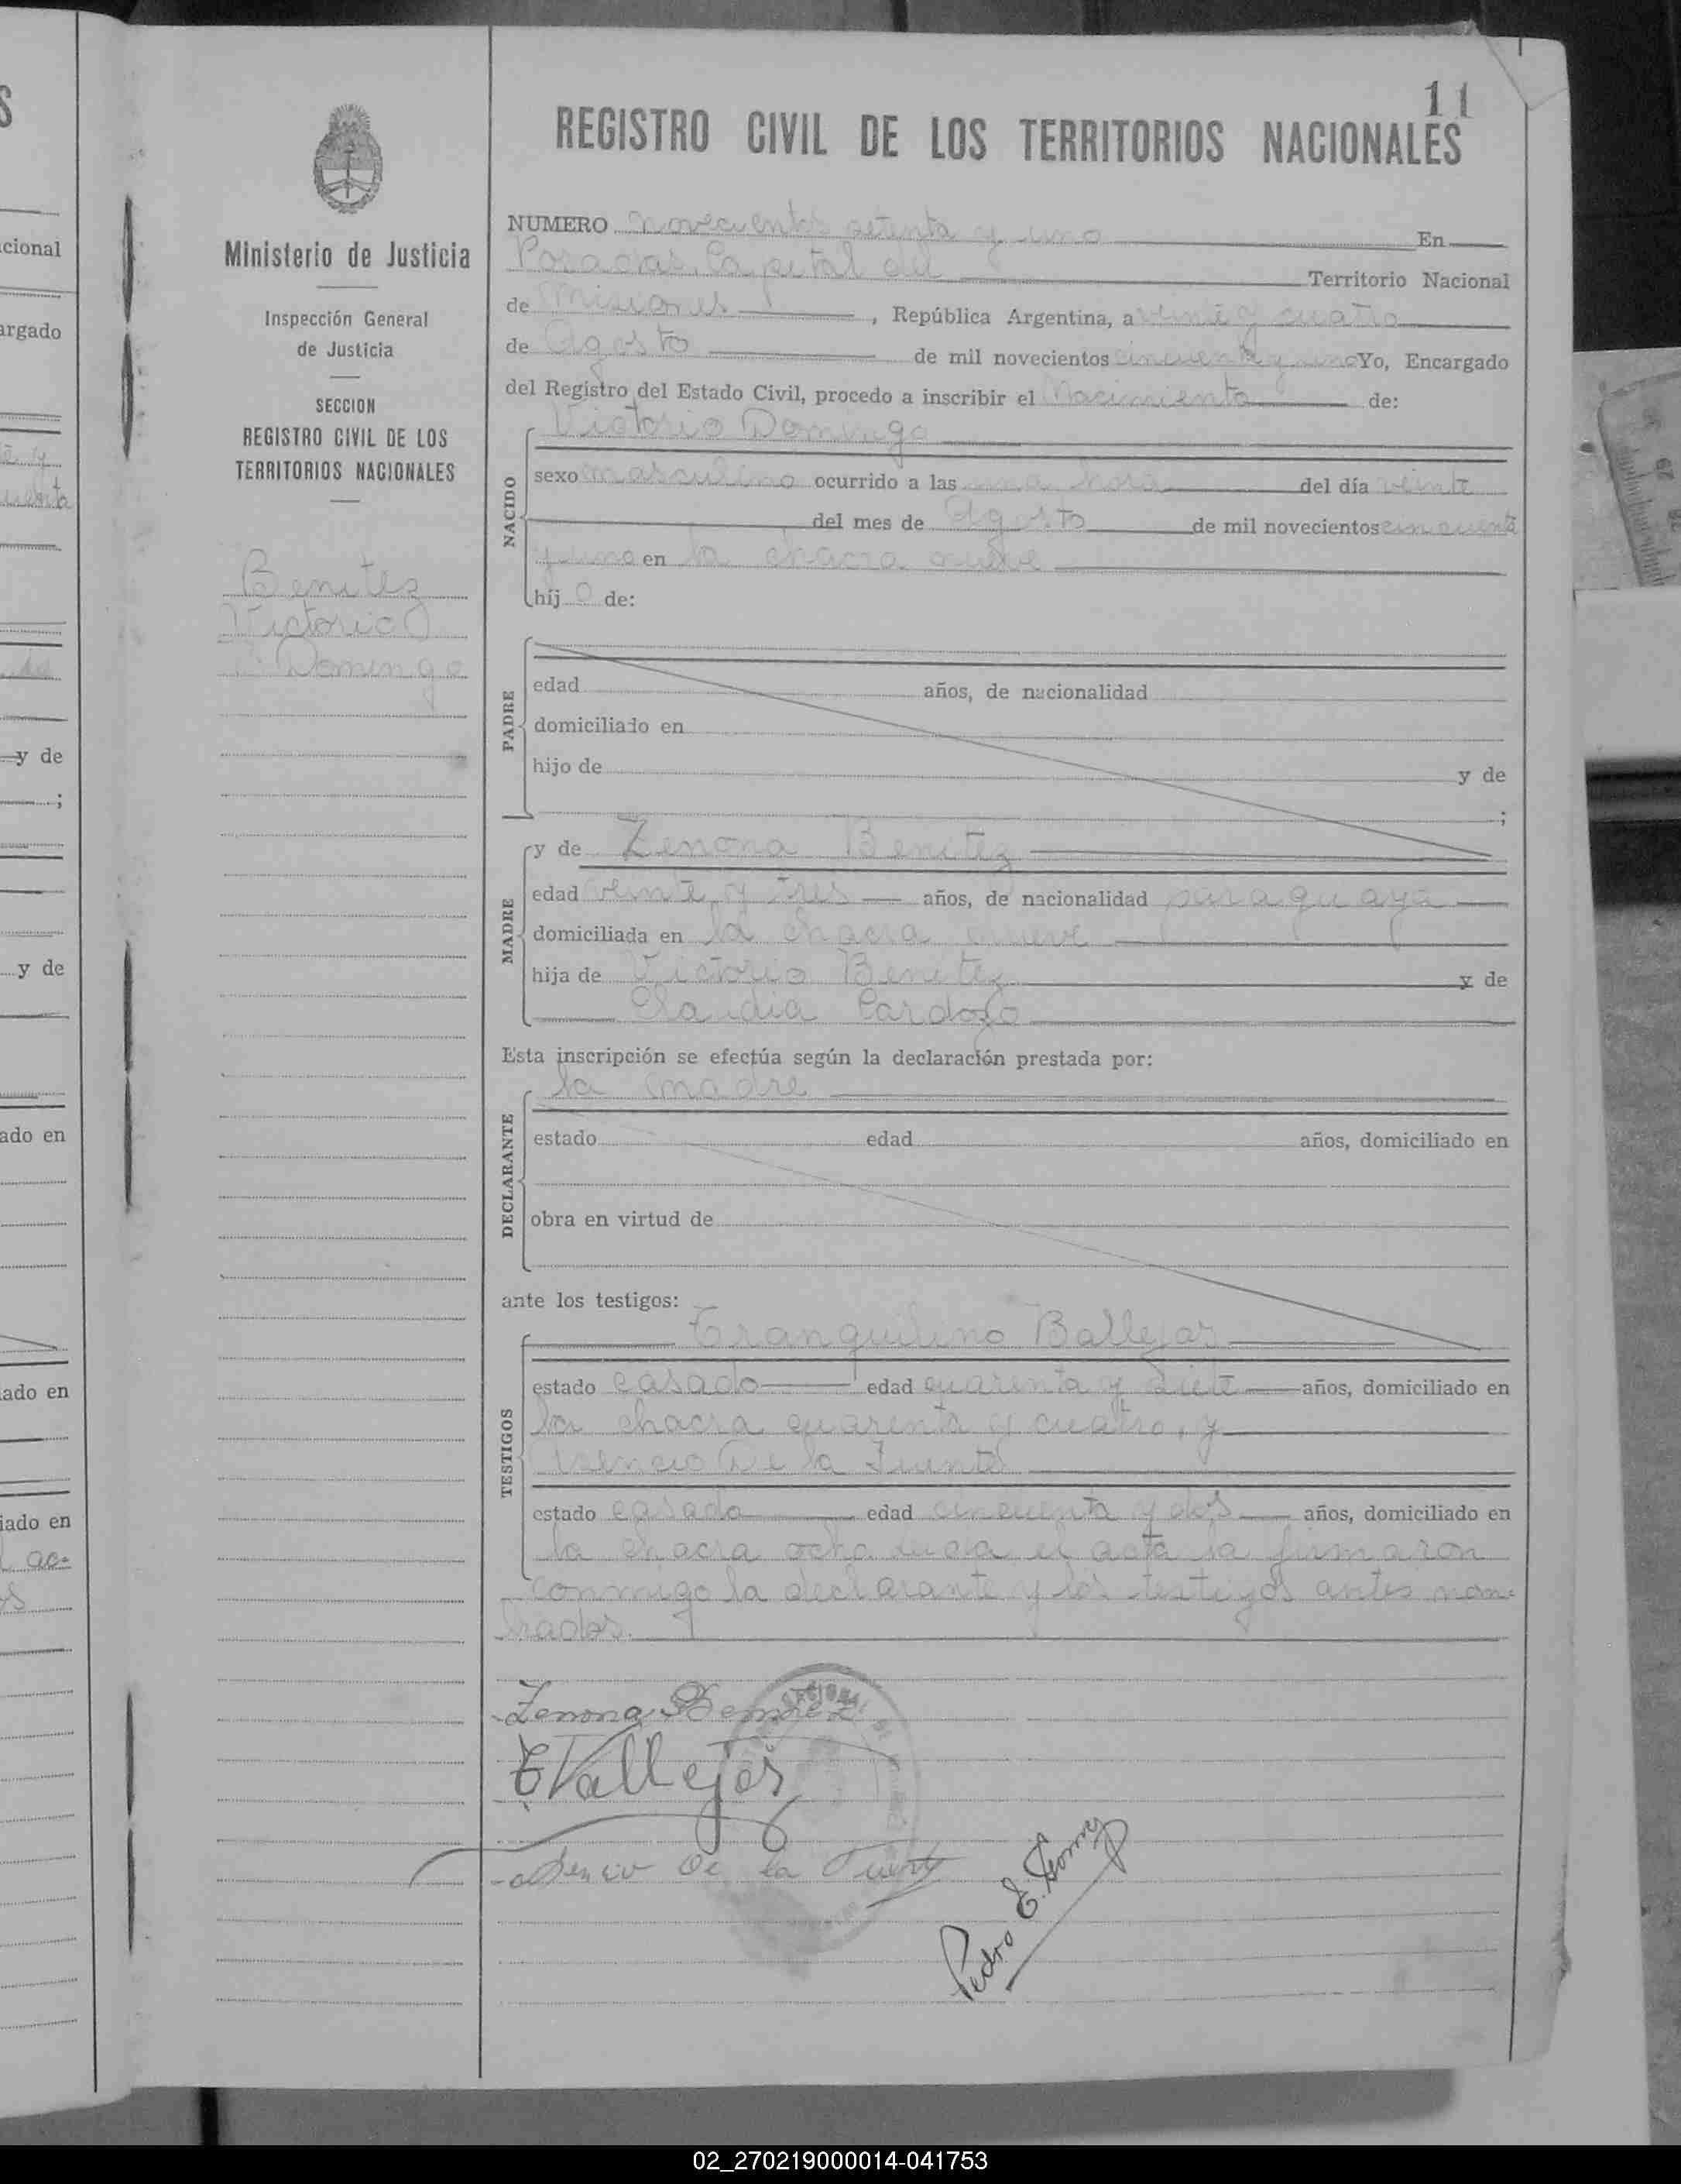 11
REGISTRO CIVIL DE LOS TERRITORIOS NACIONALES
Ministerio de Justicia
Inspección General
de Justicia
SECCION
REGISTRO CIVIL DE LOS
TERRITORIOS NACIONALES
Benitez
Victorio
Domingo
NUMERO novecientos setenta y uno En
Posadas, Capital del Territorio Nacional
de Misiones, República Argentina, a veinte y cuatro
de Agosto de mil novecientos cincuenta y uno Yo, Encargado
del Registro del Estado Civil, procedo a inscribir el Nacimiento de:
NACIDO
Victorio Domingo
sexo masculino ocurrido a las una hora del día veinte
del mes de Agosto de mil novecientos cincuenta
y uno en la chacra nueve
hij o de:
PADRE
edad años, de nacionalidad
domiciliado en
hijo de y de
;
MADRE
y de Zenona Benitez
edad veinte y tres años, de nacionalidad paraguaya
domiciliada en la chacra nueve
hija de Victorio Benitez y de
Claudia Cardozo
Esta inscripción se efectúa según la declaración prestada por:
DECLARANTE
la madre
estado edad años, domiciliado en
obra en virtud de
ante los testigos:
TESTIGOS
Tranquilino Ballejos
estado casado edad cuarenta y siete años, domiciliado en
la chacra cuarenta y cuatro, y
De la Fuente
estado casado edad cincuenta y dos años, domiciliado en
la chacra ocho el acta la firmaron
conmigo la declarante y los testigos antes nom=
brados.
Zenona Benitez
T Vallejos
De la Fuente
Pedro E. Gomez
cional
argado
y de
;
y de
ado en
ado en
iado en
02_270219000014-041753